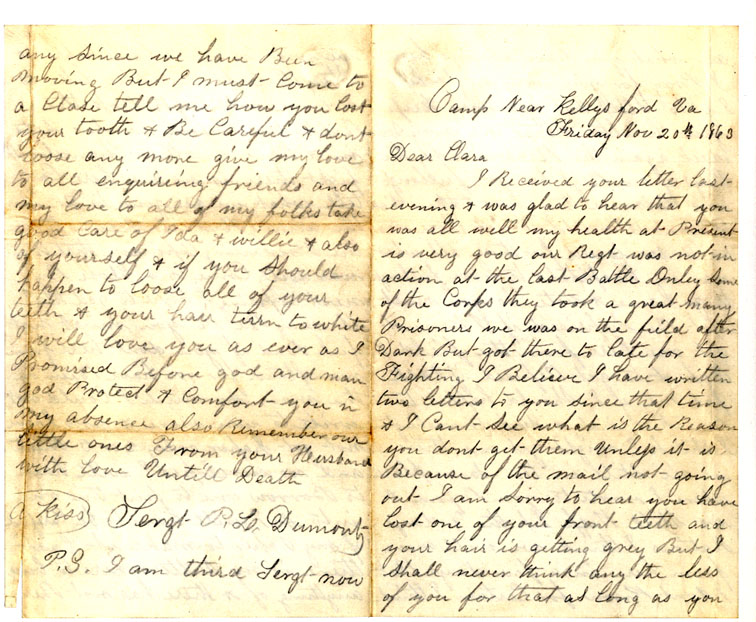 Camp Near Kellys ford Va
Friday Nov 20th 1863
Dear Clara
I Received your letter last
evening & was glad to hear that you
was all well my health at Present
is very good our Regt was not in
action at the last Battle Onley some
of the Corps they took a great many
Prisoners we was on the field after
Dark But got there to late for the
Fighting I Believe I have written
two letters to you since that time
& I Cant see what is the Reason
you dont get them Unless it is
Because of the mail not going
out I am sorry to hear you have
lost one of your front teeth and
your hair is getting grey But I
shall never think any the less
of you for that as long as you
any since we have Been
moving But I must Come to
a Close tell me how you lost
your tooth & Be Careful & dont
loose any more give my love
to all enquiring friends and
my love to all of my folks take
good Care of Ida & willie & also
of yourself & if you should
happen to loose all of your
teeth & your hair turn to white
I will love you as ever as I
Promised Before god and man
god Protect & Comfort you in
my absence also Remember our
little ones From your Husband
with love Untill Death
a kiss Sergt P. L. Dumont
P.S. I am third Sergt now